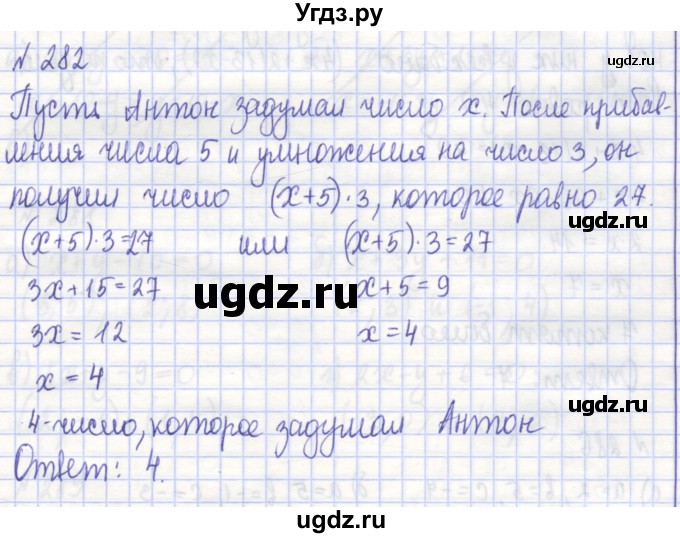 Угдз.ру
№ 282
Пусть Антон задумал число x. После прибав-
ления числа 5 и умножения на число 3, он
получил число (x+5)·3, которое равно 27.
(x+5)·3=27 или (x+5)·3=27
3x+15=27 x+5=9
3x=12 x=4
x=4
4-число, которое задумал Антон
Ответ: 4.
ugdz.ru
ugdz.ru
ugdz.ru
ugdz.ru
ugdz.ru